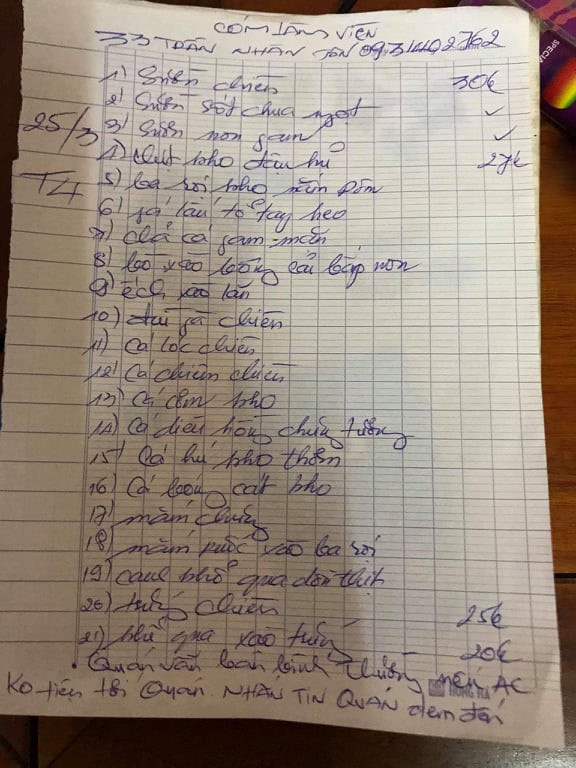 CƠM TÂM VIÊN
33 TRẦN NHÂN TÔN 0931402762
1) Sườn chiên 30k
2) Sườn sốt chua ngọt ✓
3) Sườn non ram ✓
25/3
4) thịt kho đậu hủ 27k
T4
5) ba rọi kho mắm
6) tổ tay heo
7) chả cá ram mắn
8) bò xào bông cải bắp non
9) ếch xào lăn
10) đùi gà chiên
11) cá lóc chiên
12) cá chiên
13) cá cơm kho
14) cá diêu hồng chưng tương
15) cá hú kho thơm
16) cá bống cát kho
17) mắm chưng
18) mắm ruốc xào ba rọi
19) canh khổ qua dồn thịt
20) trứng chiên 25k
21) khổ qua xào trứng 20k
• Quán vẫn bán bình thường nên AC
HỒNG HÀ
Ko tiện tới Quán NHẮN TIN QUÁN đem đến
SPECIAL